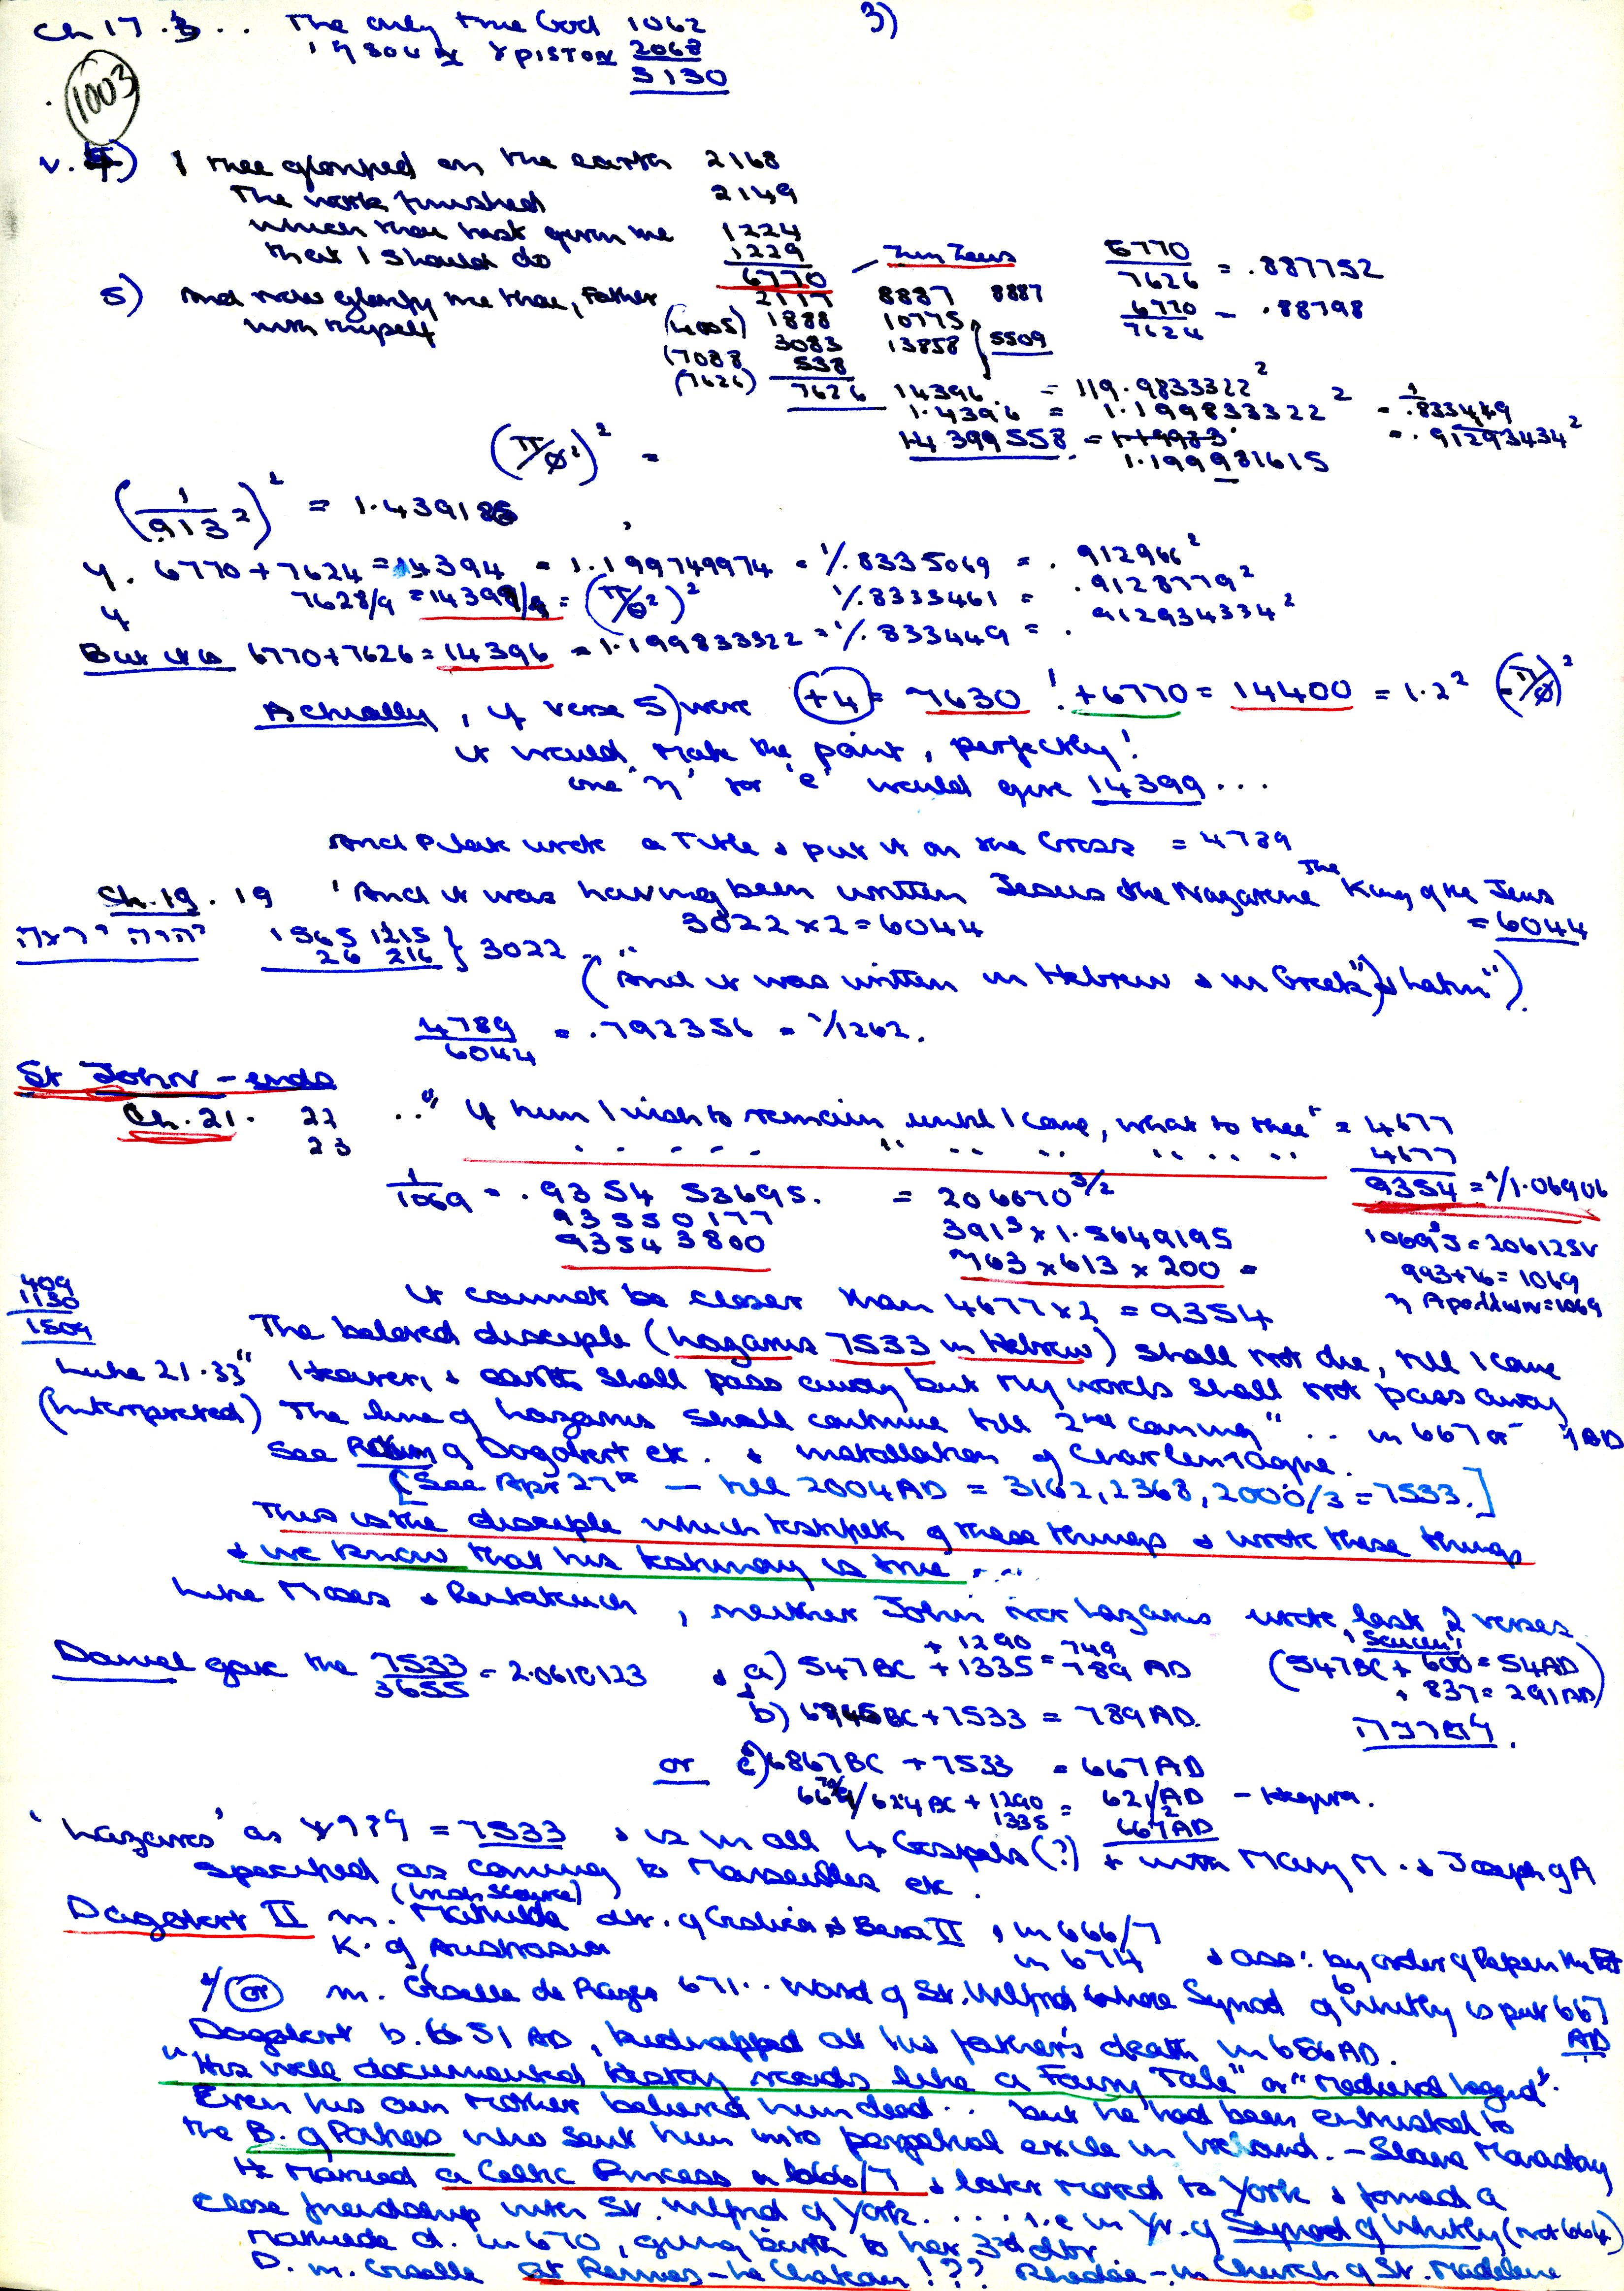 Ch 17. 3... The only true God 1062
3)
Ιησουν Χριστον 2068
3130
1003
v. 4) I thee glorified on the earth 2168
The work finished 2149
which thou hast given me 1224
that I should do 1229
6770 — Zun Zeus
6770/7626 = .887752
5) And now glorify me thou, Father 2117 8887 8887
6770/7624 = .88798
with thyself (4005) 1888 10775
(7088 3083 13858 } 5509
(7626) 538
7626 14396. = 119.9833322²
1.4396 = 1.199833322² = 1/.833449
14399558 = 1.19983 = .91293434²
1.199981615
(π/φ²)² =
(1/.913²)² = 1.439186
y. 6770 + 7624 = 14394 = 1.199749974 = 1/.8335069 = .912966²
y 7628/9 = 14398/9 = (π/φ²)² 1/.8333461 = .9128779²
But it is 6770 + 7626 = 14396 = 1.199833322 = 1/.833449 = .912934334²
Actually, if verse 5) were (+4) = 7630 ! + 6770 = 14400 = 1.2² = (π/φ²)²
it would make the point, perfectly!
one 'η' for 'e' would give 14399 ...
And Pilate wrote a Title & put it on the Cross = 4789
Ch. 19. 19 'And it was having been written Jesus the Nazarene The King of the Jews
3022 x 2 = 6044
= 6044
יהוה יראה 1565 1215 } 3022
26 216
(And it was written in Hebrew & in Greek") & Latin").
4789/6044 = .792356 = 1/1262.
St John - ends
Ch. 21. 22 .." If him I wish to remain until I come, what to thee" = 4677
23 4677
9354 = 1/1.06906
1/1069 = .9354 53695. = 206670 3/2
93550177 391³ x 1.3649195
93543800 763 x 613 x 200 =
993 + 76 = 1069
η Απολλων = 1069
it cannot be closer than 4677 x 2 = 9354
409
1130
1509
The beloved disciple (Lazarus 7533 in Hebrew) shall not die, till I come
Luke 21.33 " Heaven & earth shall pass away but My words shall not pass away
(Interpreted) The line of Lazarus shall continue till 2nd coming" .. in 667 or
See Return of Dagobert etc. & installation of Charlemagne.
[See Apr 27th — till 2004 AD = 3162, 2368, 2000/3 = 7533.]
This is the disciple which testifieth of these things & wrote these things
& we know that his testimony is true ....
Like Moses & Pentateuch, neither John nor Lazarus wrote last 2 verses
Daniel gave the 7533/3655 = 2.0610123 & a) 547 BC + 1335 = 789 AD
+ 1290 = 749
(547 BC + 600 = 54 AD
+ 837 = 291 AD)
b) 6745 BC + 7533 = 789 AD.
or c) 6867 BC + 7533 = 667 AD
669/624 BC + 1290 = 621/2 AD - Hegira.
1335 667 AD
'Lazarus' as = 7533 & is in all 4 Gospels (?) + with Mary M. & Joseph of A
specified as coming to Marseilles etc.
(Irish source)
Dagobert II m. Mathilde dtr. of Gislica & Bera II, in 666/7
K. of Austrasia in 674 & ass: by order of Pepin
y (or) m. Giselle de Razes 671.. Ward of St. Wilfrid whose Synod of Whitby is put 667
AD
Dagobert b. 651 AD, kidnapped at his father's death in 656 AD.
"His well documented history reads like a Fairy Tale" or "Medieval legend".
Even his own Mother believed him dead .. but he had been entrusted to
the B. of Poitiers who sent him into perpetual exile in Ireland. - Slane Monastery
He married a Celtic Princess in 666/7 & later moved to York & formed a
close friendship with St. Wilfrid of York. .... i.e in Yr. of Synod of Whitby (not 664)
Mathilde d. in 670, giving birth to her 3rd dtr.
D. m. Giselle at Rennes-le-Chateau !?? Rhedae - in Church of St. Madeleine